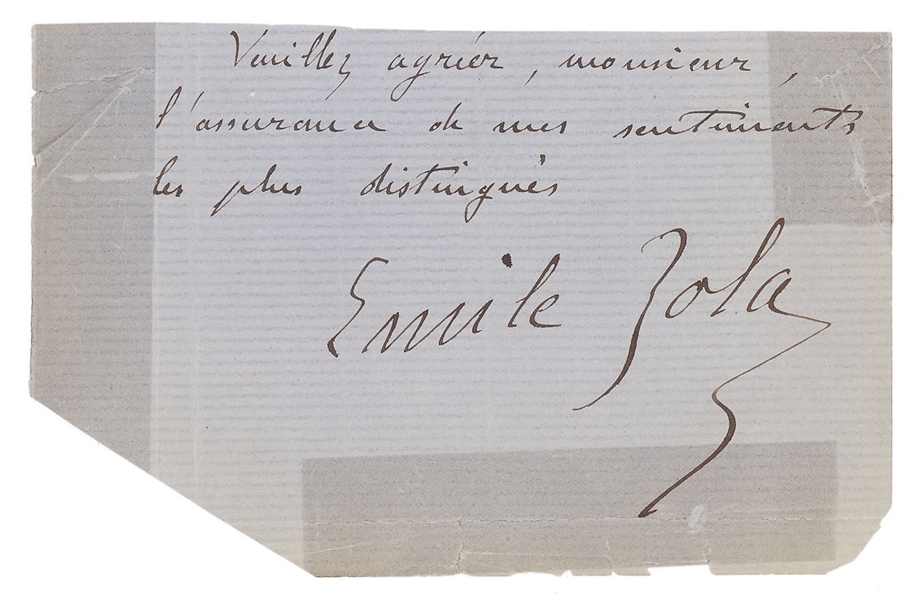 Veuillez agréer, monsieur,
l'assurance de mes sentiments
les plus distingués
Emile Zola